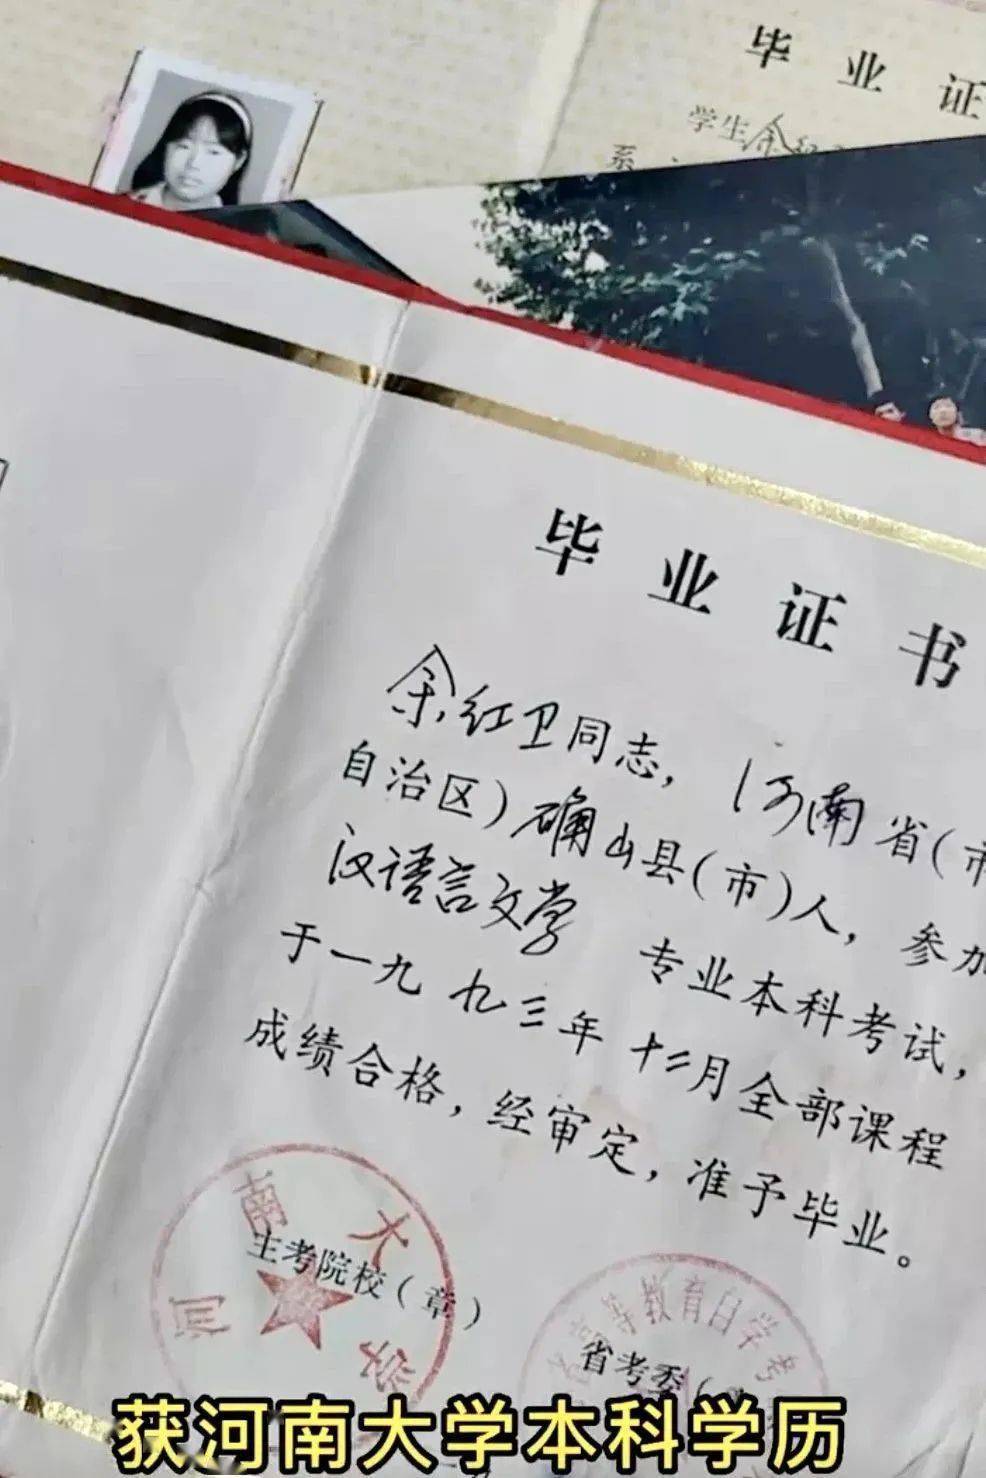 毕业证
学生余红
系
毕业证书
余红卫同志，河南省（市
自治区）确山县（市）人，参加
汉语言文学 专业本科考试，
于一九九三年十二月全部课程
成绩合格，经审定，准予毕业。
河南大学
主考院校（章）
高等教育自学考
省考委（
获河南大学本科学历